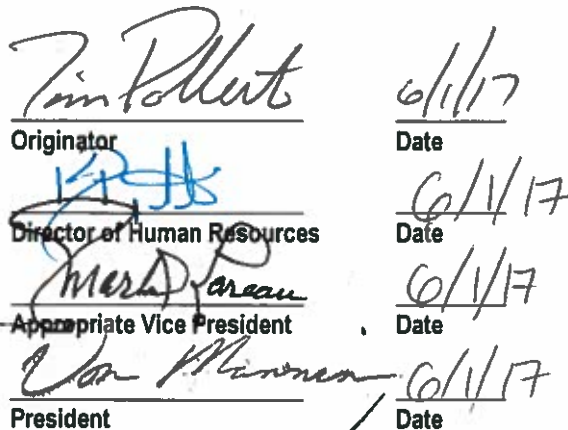 Tim Pollert 6/1/17
Originator Date
6/1/17
Director of Human Resources Date
Mark D. Lareau 6/1/17
Appropriate Vice President Date
6/1/17
President Date